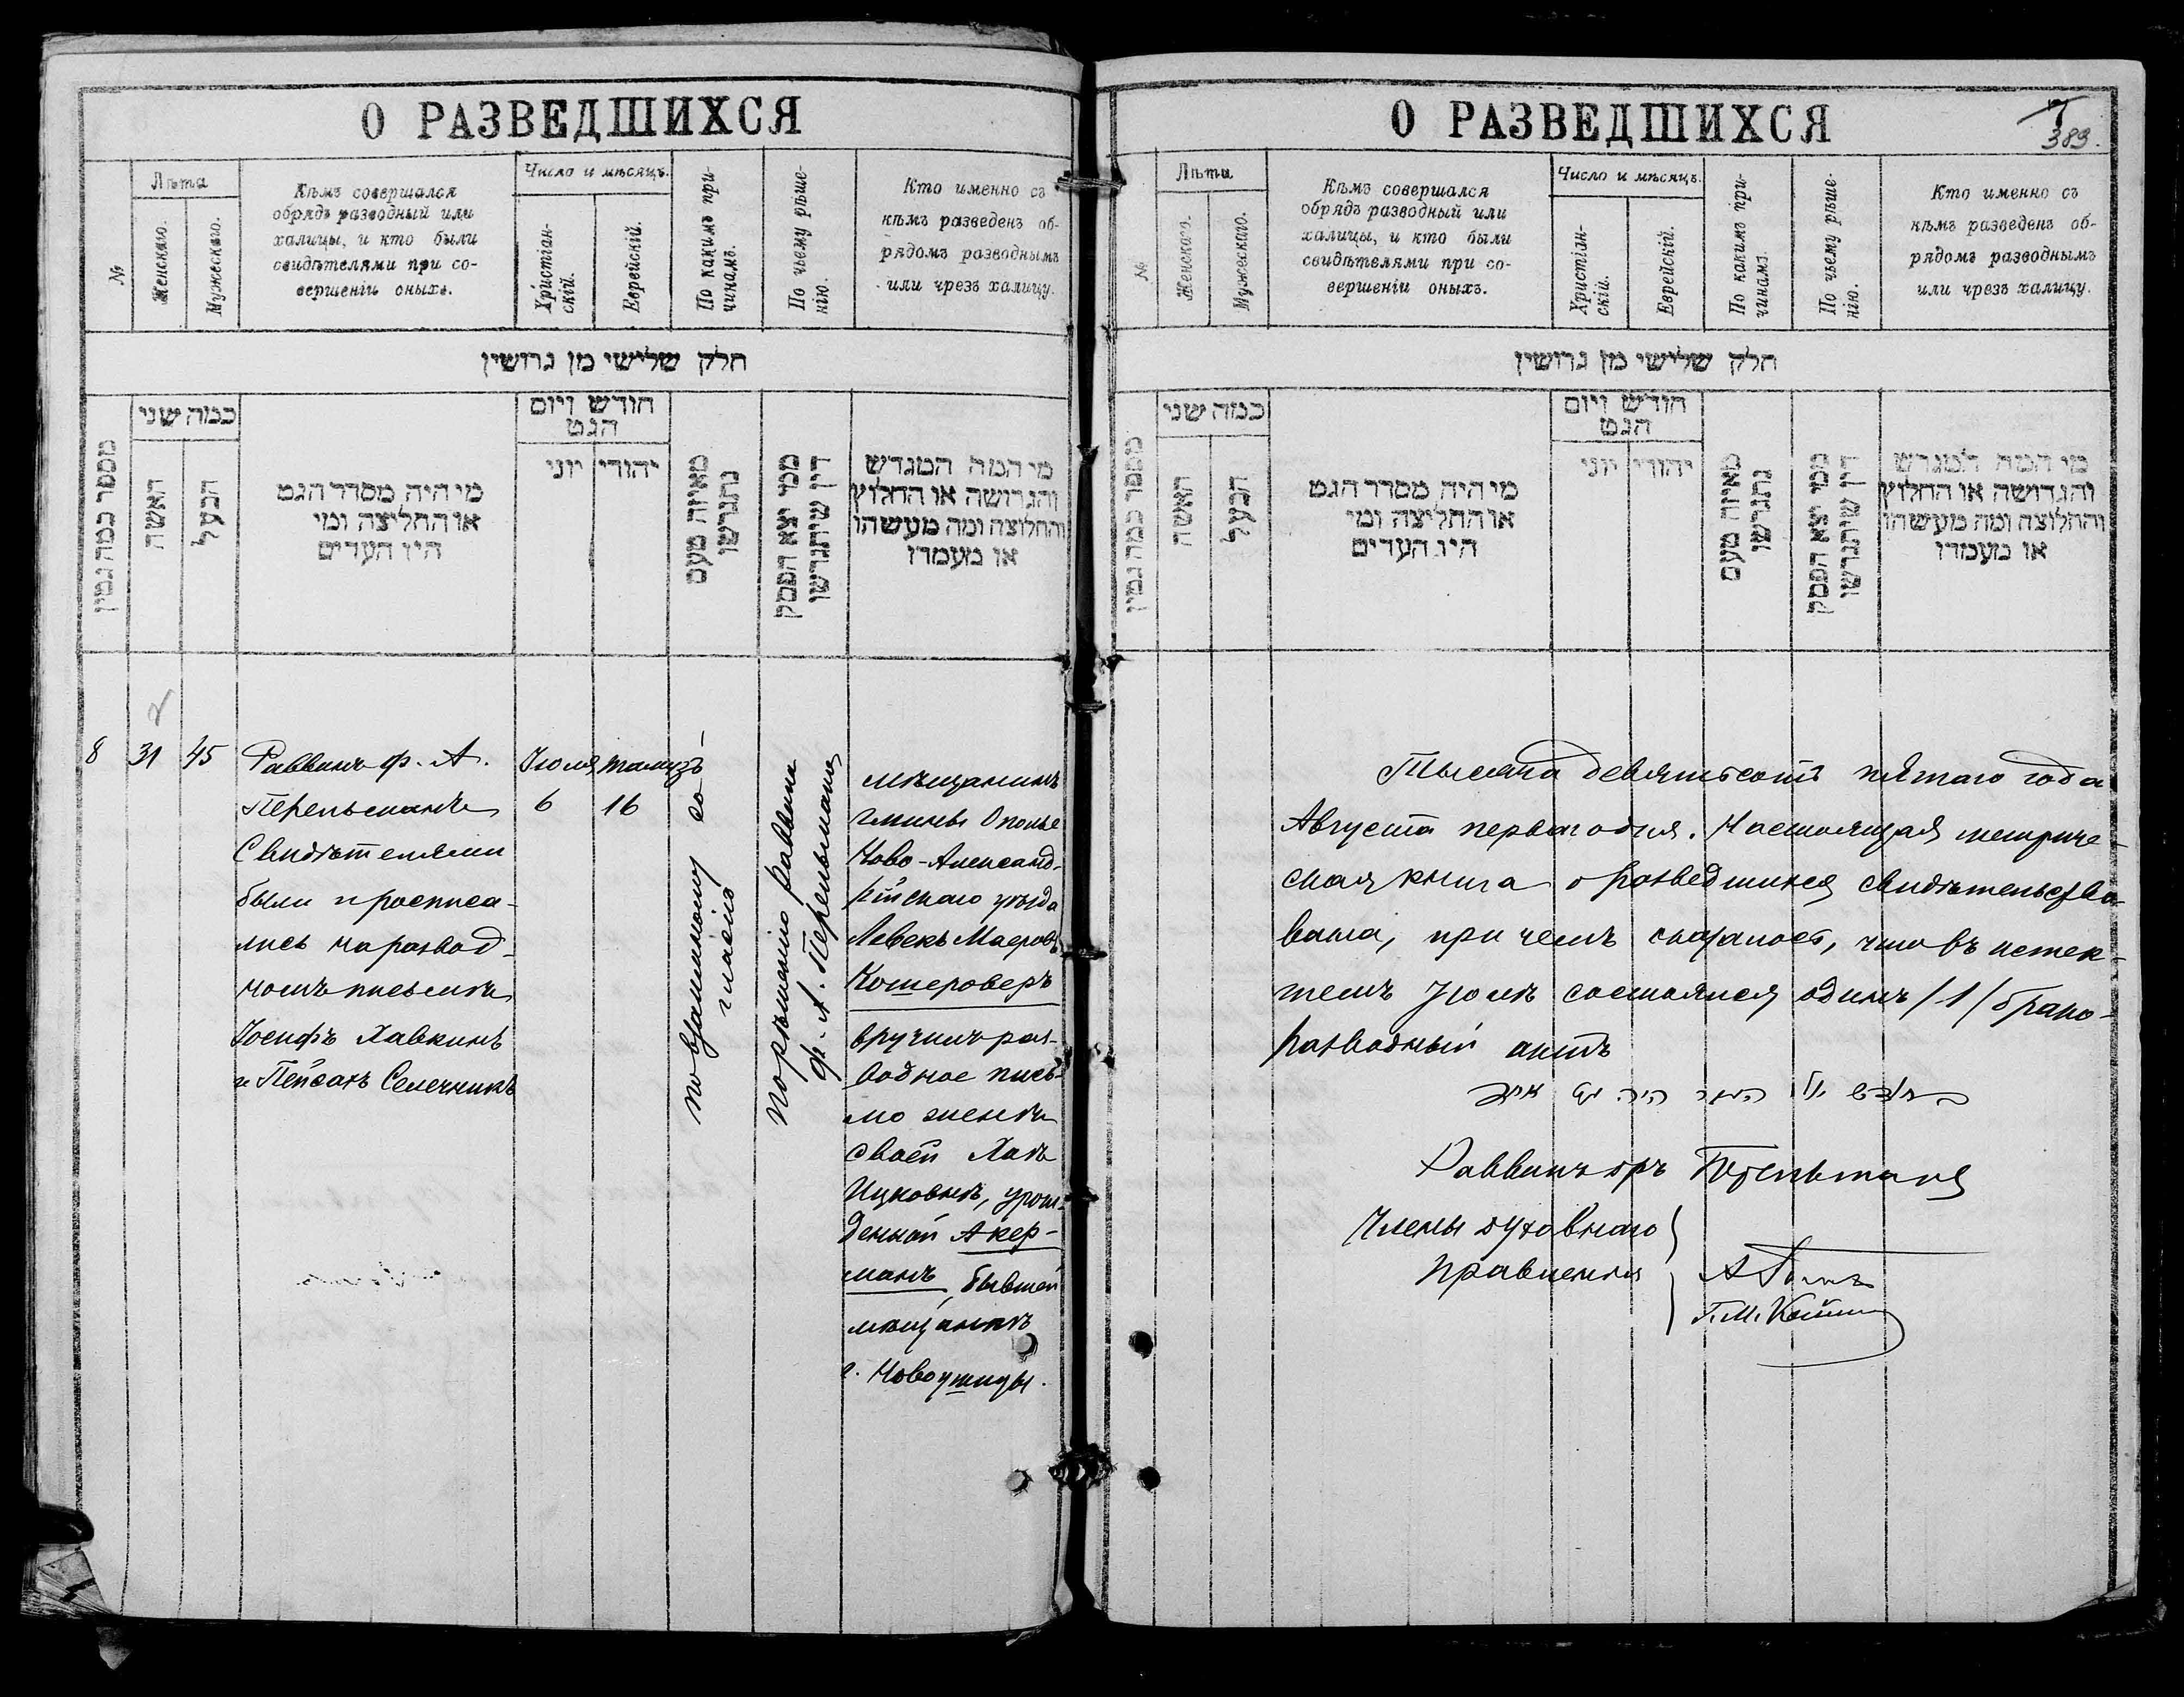 О РАЗВЕДШИХСЯ
№
Лѣта
Женскаго.
Мужескаго.
Кѣмъ совершался
обрядъ разводный или
халицы, и кто были
свидѣтелями при со-
вершеніи оныхъ.
Число и мѣсяцъ.
Христіан-
скій.
Еврейскій.
По какимъ при-
чинамъ.
По чьему рѣше-
нію.
Кто именно съ
кѣмъ разведенъ об-
рядомъ разводнымъ
или чрезъ халицу.
חלק שלישי מן גרושין
מספר כמה גטין
כמה שני
האשה
הבעל
מי היה מסדר הגט
או החליצה ומי
היו העדים
חודש ויום
הגט
יהודי
יוני
מאיזה טעם
נתגרשו
ממי יצא הפסק
דין שיתגרשו
מי המה המגרש
והגרושה או החלוץ
והחלוצה ומה מעשהו
או מעמדו
8
31
45
Раввинъ ф. А.
Перельманъ
Свидѣтелями
были и росписа-
лись на развод-
номъ письмѣ
Іосифъ Хавкинъ
и Пейсахъ Селечникъ
Іюля
6
тамузъ
16
по взаимному со-
гласію
По рѣшенію раввина
ф. А. Перельмана
мѣщанинъ
гмины Ополье
Ново-Александ-
рійскаго уѣзда
Лейвекъ Маеровъ
Кошероверъ
вручилъ раз-
водное пись-
мо женѣ
своей Хаѣ
Ицковнѣ, урож-
денной Акер-
манъ, бывшей
мѣщанкѣ
г. Новоушицы.
О РАЗВЕДШИХСЯ
7
383.
№
Лѣта
Женскаго.
Мужескаго.
Кѣмъ совершался
обрядъ разводный или
халицы, и кто были
свидѣтелями при со-
вершеніи оныхъ.
Число и мѣсяцъ.
Христіан-
скій.
Еврейскій.
По какимъ при-
чинамъ.
По чьему рѣше-
нію.
Кто именно съ
кѣмъ разведенъ об-
рядомъ разводнымъ
или чрезъ халицу.
חלק שלישי מן גרושין
מספר כמה גטין
כמה שני
האשה
הבעל
מי היה מסדר הגט
או החליצה ומי
היו העדים
חודש ויום
הגט
יהודי
יוני
מאיזה טעם
נתגרשו
ממי יצא הפסק
דין שיתגרשו
מי המה המגרש
והגרושה או החלוץ
והחלוצה ומה מעשהו
או מעמדו
Тысяча девятьсотъ пятаго года
Августа перваго дня. Настоящая метриче-
ская книга о разведшихся свидѣтельство-
вана, при чемъ оказалось, что въ истек-
шемъ Іюлѣ состоялся одинъ /1/ брако-
разводный актъ
היה
Раввинъ фръ Перельманъ
Члены духовнаго
Правленія
Г. М.